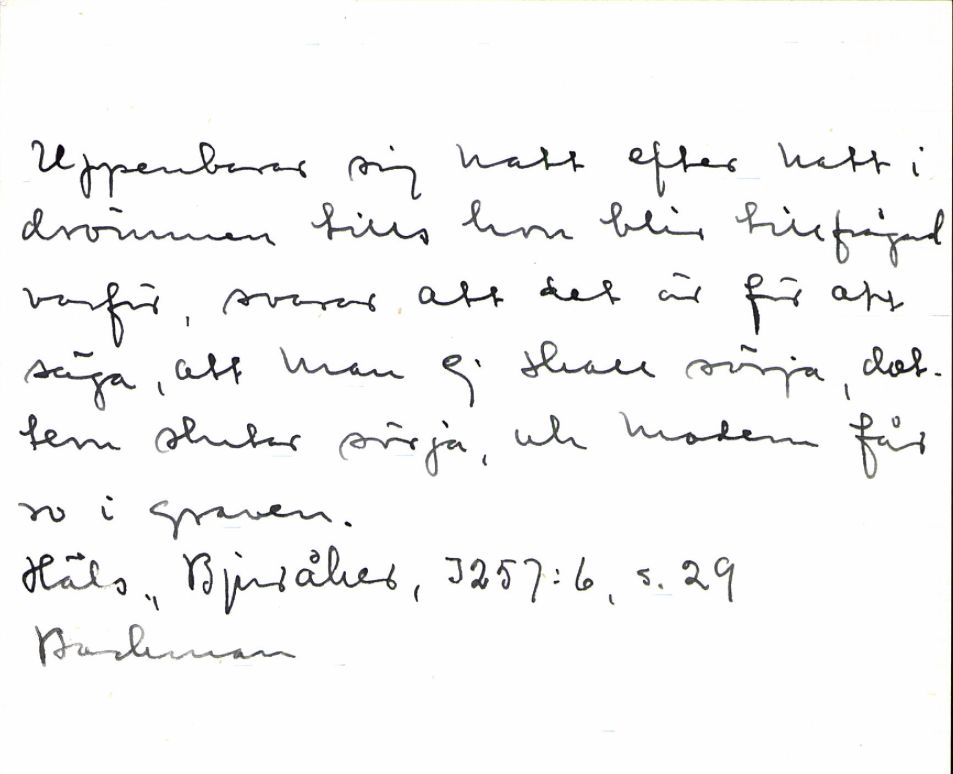 Uppenbarar sig natt efter natt i
drömmen tills hon blir tillfrågad
varför, svarar att det är för att
säga, att man ej skall sörja, dot-
tern slutar sörja, och modern får
ro i graven.
Häls., Bjuråker, J257:6, s. 29
Backman